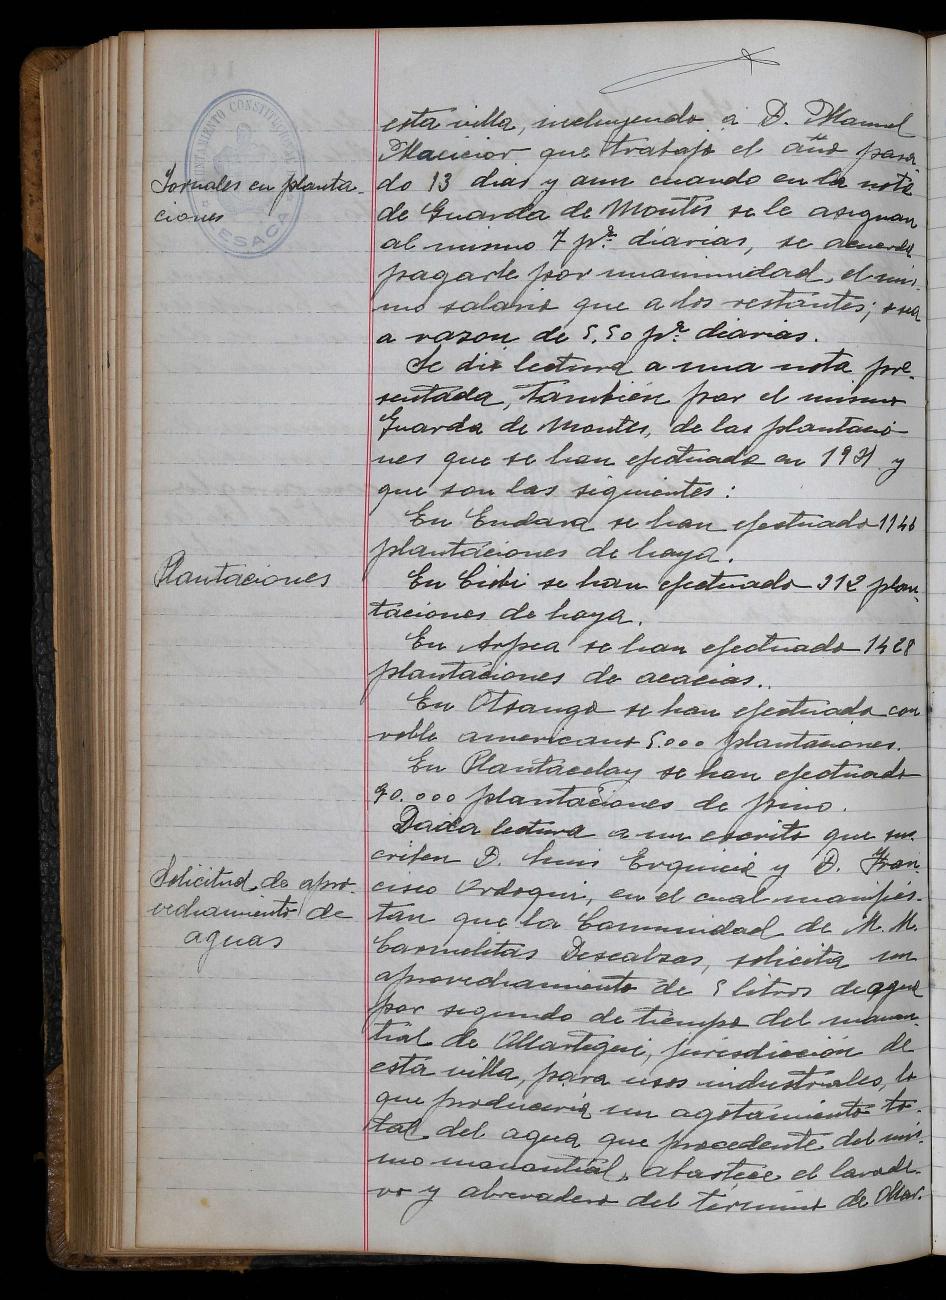 AYUNTAMIENTO CONSTITUCIONAL
LESACA
Jornales en planta-
ciones
esta villa, incluyendo a D. Manuel
que trabajó el año pasa
do 13 dias y aun cuando en la nota
de Guarda de Montes se le asignan
al mismo 7 pts. diarias, se acuerda
pagarle por unanimidad, el mis-
mo salario que a los restantes; o sea
a razon de 5,50 pts. diarias.
Se dió lectura a una nota pre-
sentada, también por el mismo
Guarda de Montes, de las plantacio-
nes que se han efectuado en 1931 y
que son las siguientes:
En Endara se han efectuado 1146
plantaciones de haya.
Plantaciones
En se han efectuado 312 plan-
taciones de haya.
En Arpea se han efectuado 1428
plantaciones de acacias.
En Otsango se han efectuado con
roble americano 5.000 plantaciones.
En Plantacelay se han efectuado
90.000 plantaciones de pino.
Dada lectura a un escrito que sus-
Solicitud de apro-
vechamiento de
aguas
criben D. Luis y D. Fran-
cisco Ordoqui, en el cual manifies-
tan que la Comunidad de M.M.
Carmelitas Descalzas, solicita un
aprovechamiento de 5 litros de agua
por segundo de tiempo del manan-
tial de jurisdicción de
esta villa, para usos industriales, lo
que produciria un agotamiento to-
tal del agua que procedente del mis-
mo manantial, abastece el lavade-
ro y abrevadero del termino de